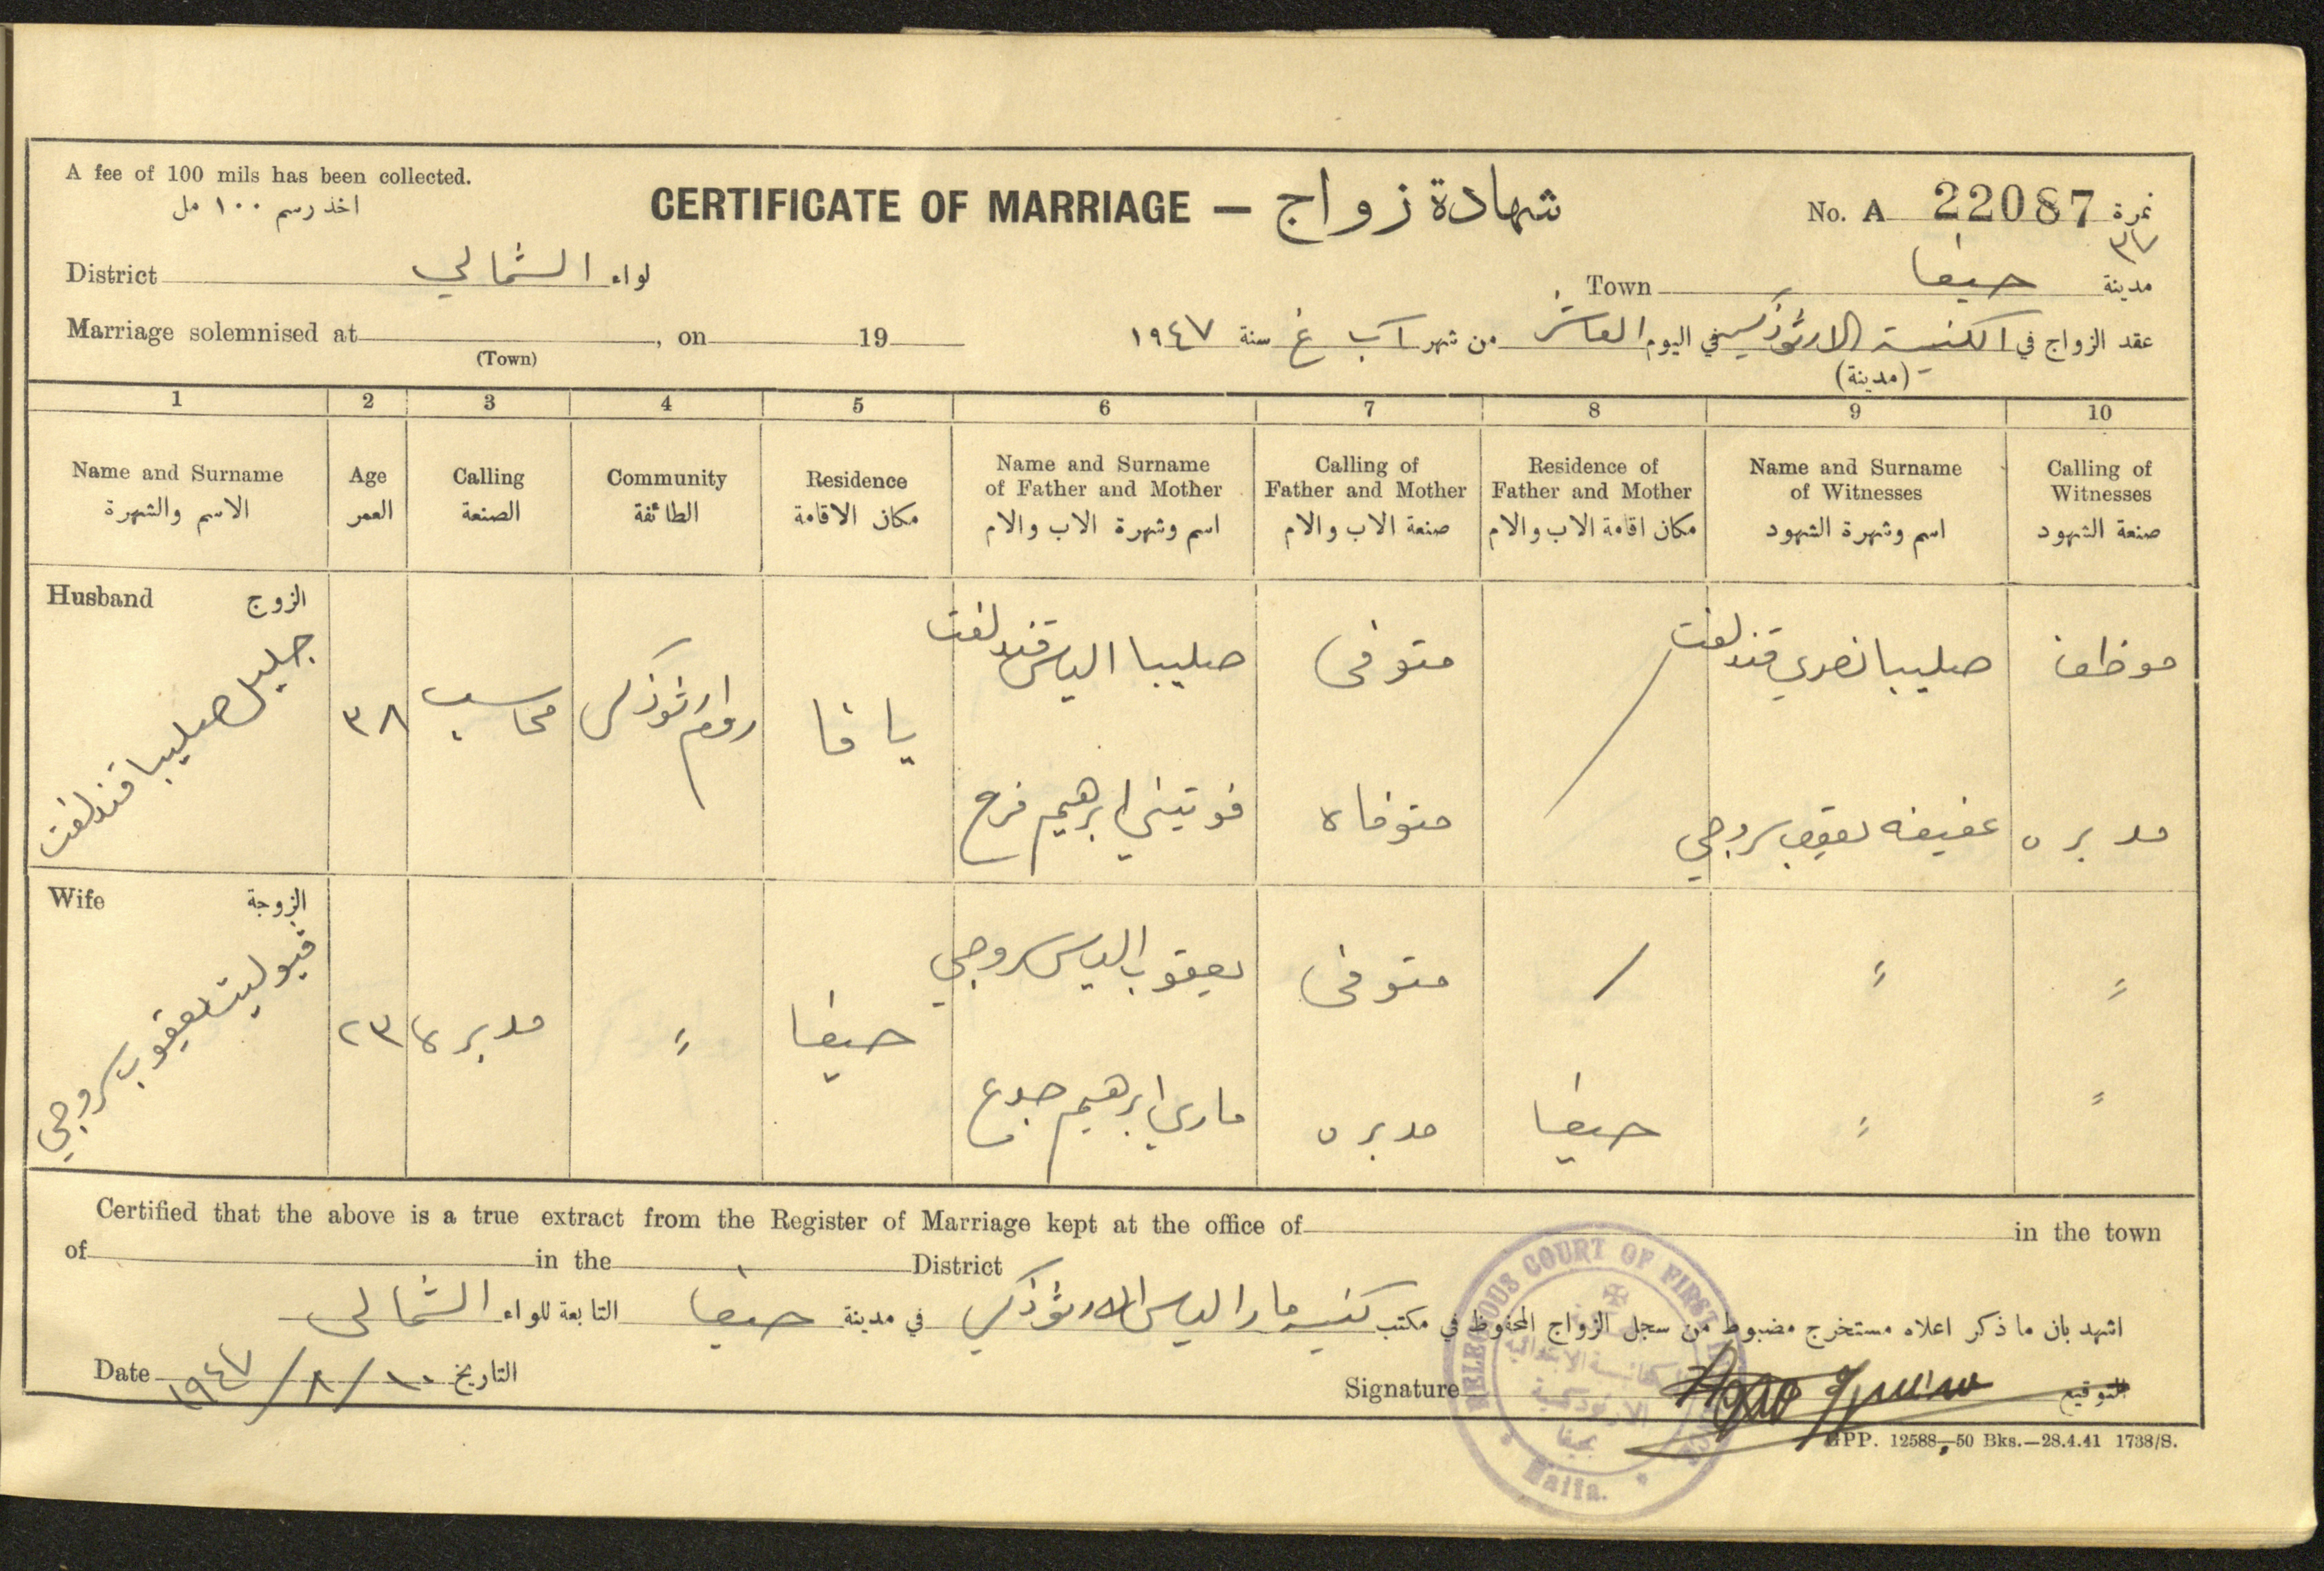 A fee of 100 mils has been collected.
اخذ رسم ١٠٠ مل
CERTIFICATE OF MARRIAGE — شهادة زواج
No. A 22087 نمرة
٣٧
District الشمالي لواء
Town حيفا مدينة
Marriage solemnised at , on 19
(Town)
عقد الزواج في الكنيسة الارثوذكسية في اليوم العاشر من شهر آب غ سنة ١٩٤٧
(مدينة)
1 2 3 4 5 6 7 8 9 10
Name and Surname
الاسم والشهرة
Age
العمر
Calling
الصنعة
Community
الطائفة
Residence
مكان الاقامة
Name and Surname
of Father and Mother
اسم وشهرة الاب والام
Calling of
Father and Mother
صنعة الاب والام
Residence of
Father and Mother
مكان اقامة الاب والام
Name and Surname
of Witnesses
اسم وشهرة الشهود
Calling of
Witnesses
صنعة الشهود
Husband الزوج
جليل صليبا قندلفت
٣٨
محاسب
روم ارثوذكس
يافا
صليبا الياس قندلفت
فوتيني ابرهيم فرح
متوفى
متوفاه
/
صليبا نصري قندلفت
عفيفه يعقوب سروجي
موظف
مدبره
Wife الزوجة
فيوليت يعقوب سروجي
٢٣
مدبره
〃
حيفا
يعقوب الياس سروجي
ماري ابرهيم جدع
متوفى
مدبره
/
حيفا
〃
〃
〃
〃
Certified that the above is a true extract from the Register of Marriage kept at the office of in the town
of in the District
اشهد بان ما ذكر اعلاه مستخرج مضبوط من سجل الزواج المحفوظ في مكتب كنيسة مار الياس الارثوذكس في مدينة حيفا التابعة للواء الشمالي
Date ١٩٤٧/٨/١٠ التاريخ
Signature التوقيع
RELIGIOUS COURT OF FIRST
الكنائسية الابتدائية
الارثوذكسية
بحيفا
Haifa.
GPP. 12588—50 Bks.—28.4.41 1738/S.